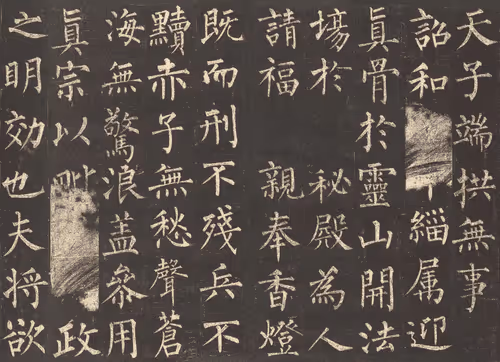 天子端拱無事
詔和緇属迎
眞骨於靈山開法
場於 秘殿為人
請福 親奉香燈
既而刑不殘兵不
黷赤子無愁聲蒼
海無驚浪蓋叅用
眞宗以政
之明効也夫将欲